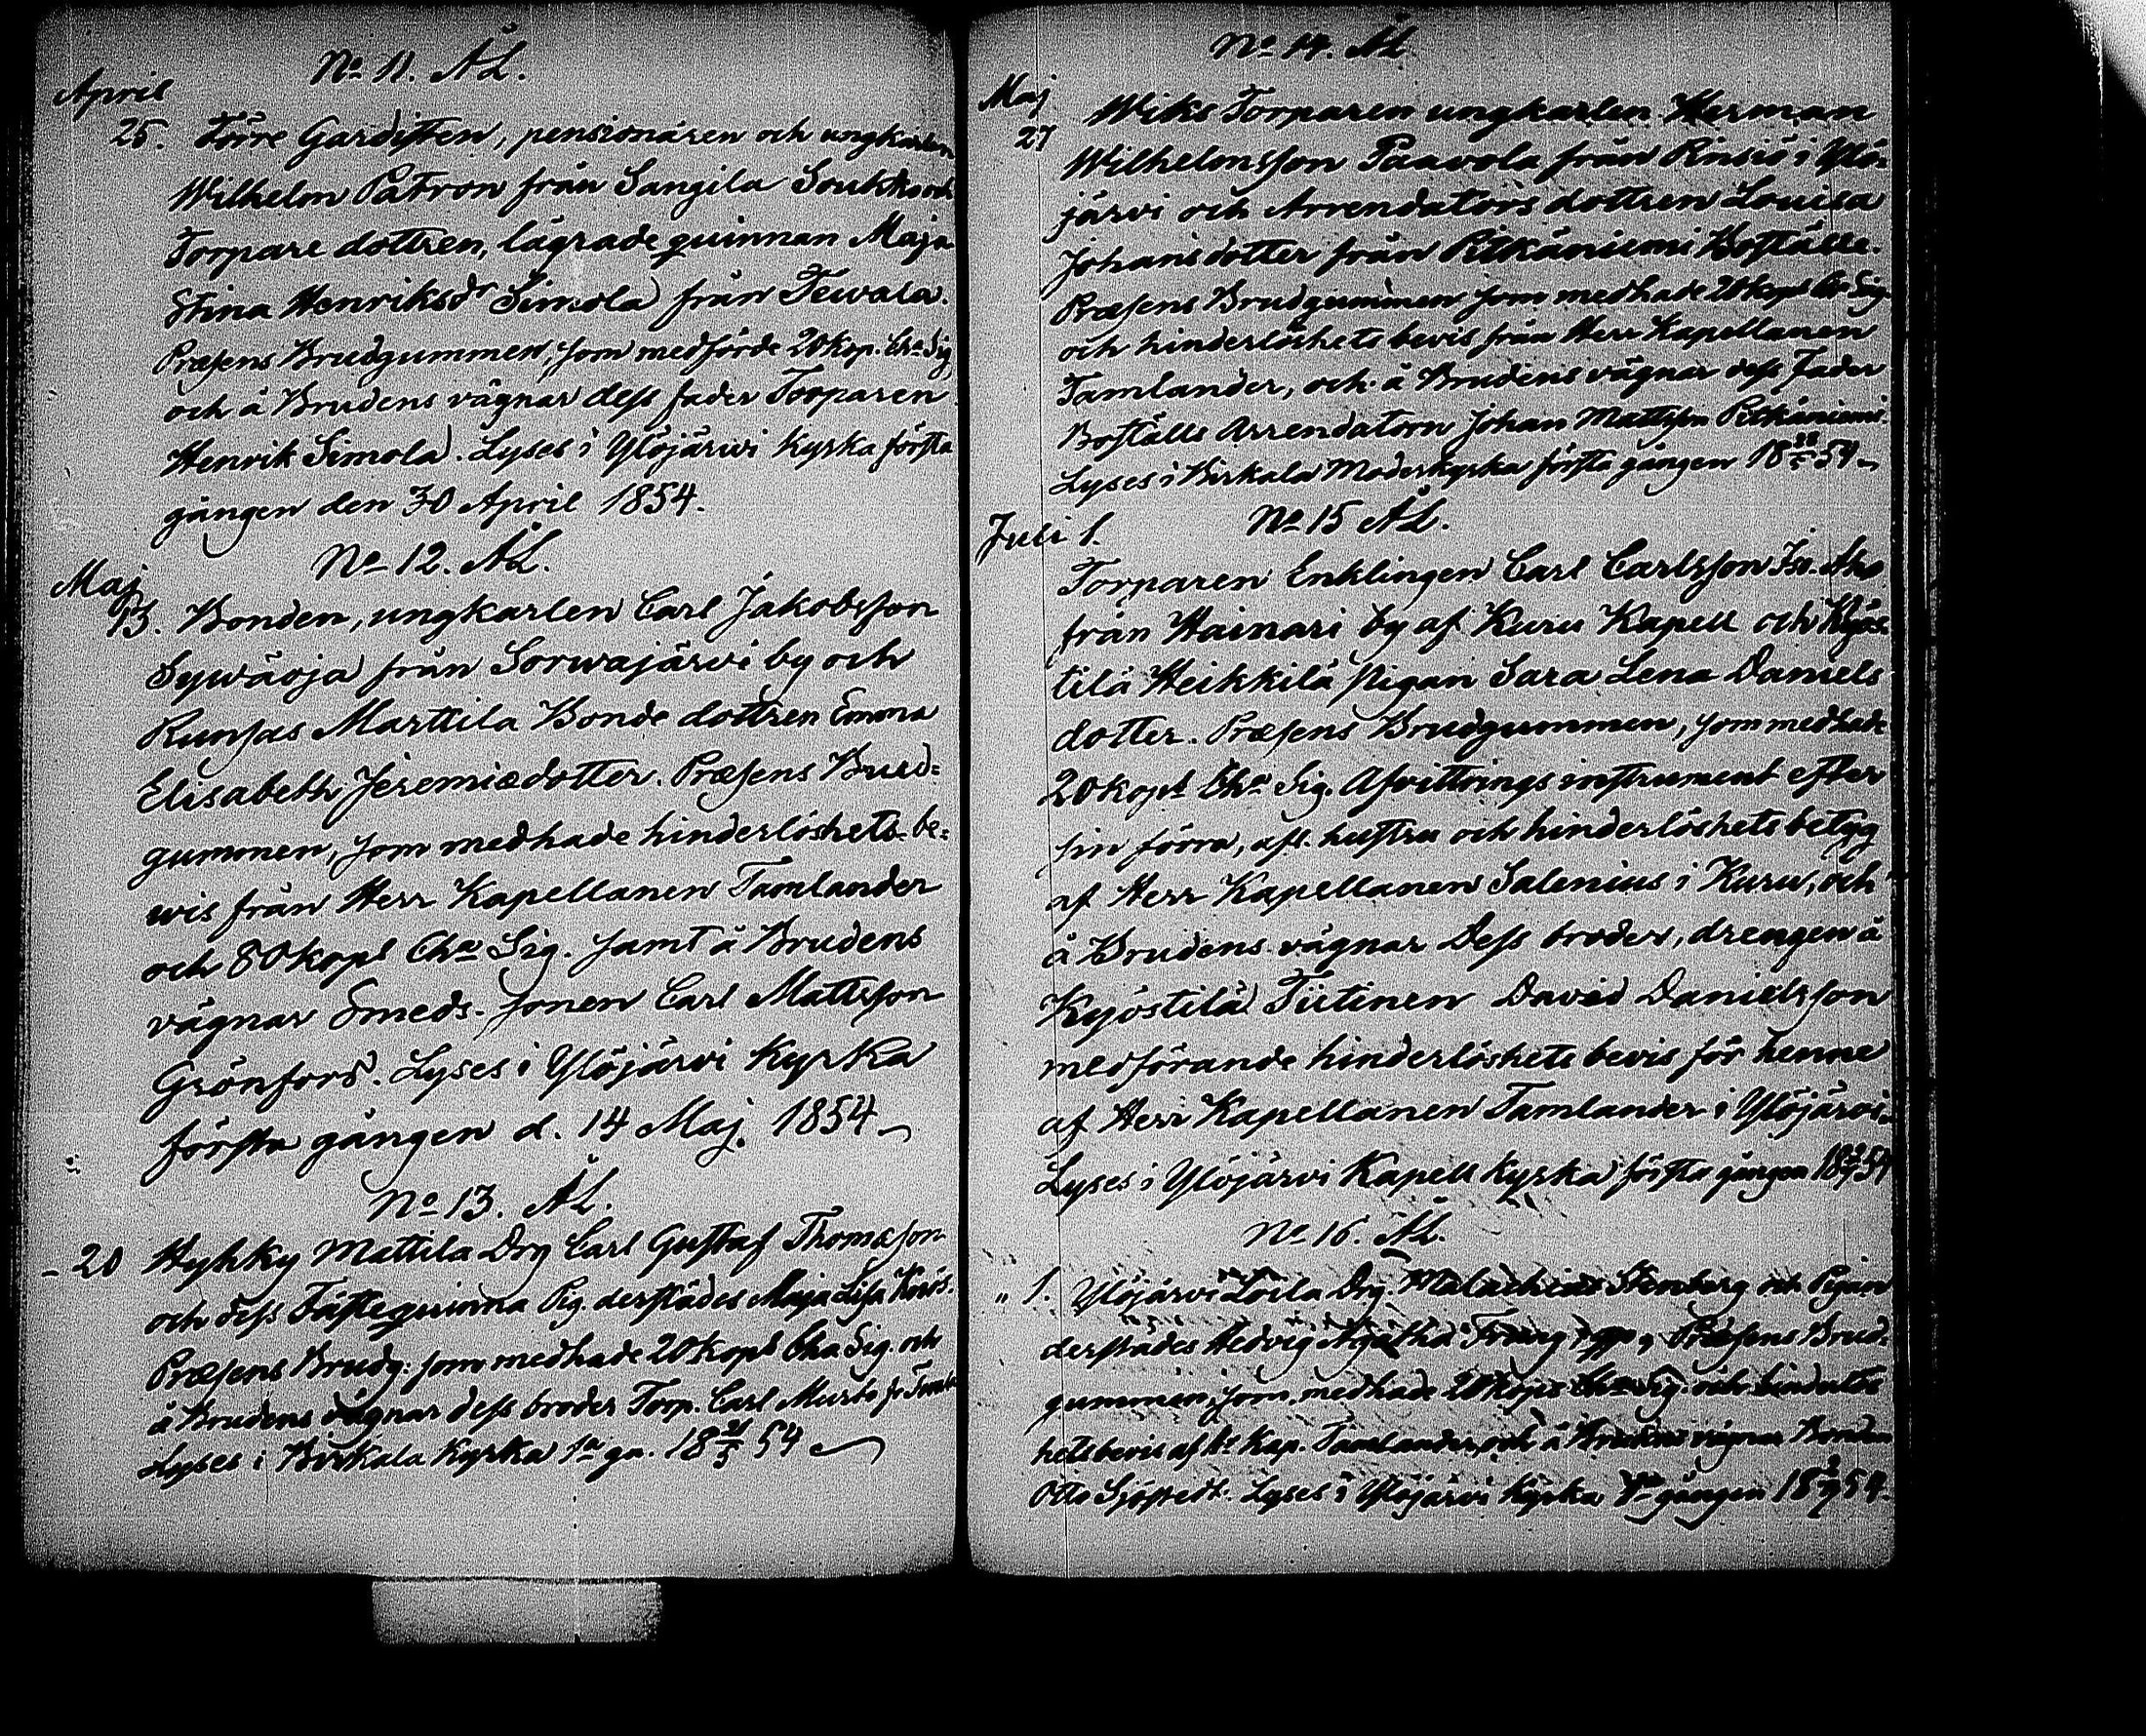 No 11. ÅL.
April
25. Förre Gardisten, pensionären och ungkarlen
Wilhelm Patron från Sangila Soukko och
Torpare dottren, lägrade quinnan Maja
Stina Henriksdr Simola från Tewala.
Præsens Brudgummen, som medförde 20 kop. Cha Sig
och å Brudens vägnar dess fader Torparen
Henrik Simola. Lyses i Ylöjärwi Kyrka första
gången den 30 April 1854.
No 12. ÅL.
Maj
13. Bonden, ungkarlen Carl Jakobsson
Sywäoja från Sorwajärvi by och
Runsas Marttila Bonde dottren Emma
Elisabeth Jeremiædotter. Præsens Brud=
gummen, som medhade hinderlöshets be=
wis från Herr Kapellanen Tamlander
och 80 kops Cha Sig. samt å Brudens
vägnar Smeds-sonen Carl Mattsson
Grönfors. Lyses i Ylöjärvi Kyrka
första gången d. 14 Maj. 1854
No 13. ÅL.
- 20 Hyhky Mattila Drg Carl Gustaf Thomæson
och dess Fästequinna Pig. derstädes Maja Lisa
Præsens Brudg: som medhade 20 kops Cha Sig. och
å Brudens vägnar dess broder Torp. Carl Murto
Lyses i Birkala Kyrka 1a gn. 18 21/5 54
No 14. ÅL
Maj
27 Wiks Torparen ungkarlen Herman
Wilhelmsson Paavola från Pinsiö i Ylö-
järvi och Arrendators dottren Louisa
Johansdotter från Pitkäniemi Boställe.
Præsens Brudgummen som medhade 20 kops Cha Sig.
och hinderlöshets bevis från Herr Kapellanen
Tamlander, och å Brudens vägnar dess Fader
Boställs Arrendatorn Johan Mattsson Pitkäniemi.
Lyses i Birkala Moderkyrka första gången 18 28/5 54
No 15 ÅL.
Juli 1.
Torparen Enklingen Carl Carlsson Iso Aho
från Hainari by af Kuru Kapell och Kyös-
tilä Heikkilä Pigan Sara Lena Daniels
dotter. Præsens Brudgummen, som medhade
20 kops Cha Sig. Afvittrings instrument efter
sin förra, afl. hustru och hinderlöshets betyg
af Herr Kapellanen Salenius i Kuru, och
å Brudens vägnar Dess broder, drengen å
Kyöstilä Tiitinen David Danielsson
medförande hinderlöshets bevis för henne
af Herr Kapellanen Tamlander i Ylöjärvi.
Lyses i Ylöjärvi Kapell kyrka första gången 18 2/7 54
No 16. ÅL.
" 1. Ylöjärvi Löila Drg. Malachias Stenberg och Pigan
derstädes Hedvig Agatha Præsens Brud-
gummen, som medhade 20 kops Cha Sig. och hinderlös
hets bevis af Hr Kap. Tamlander, och å Brudens vägnar Bonden
Otto Sjöstedt. Lyses i Ylöjärvi Kyrka 1a gången 18 2/7 54.